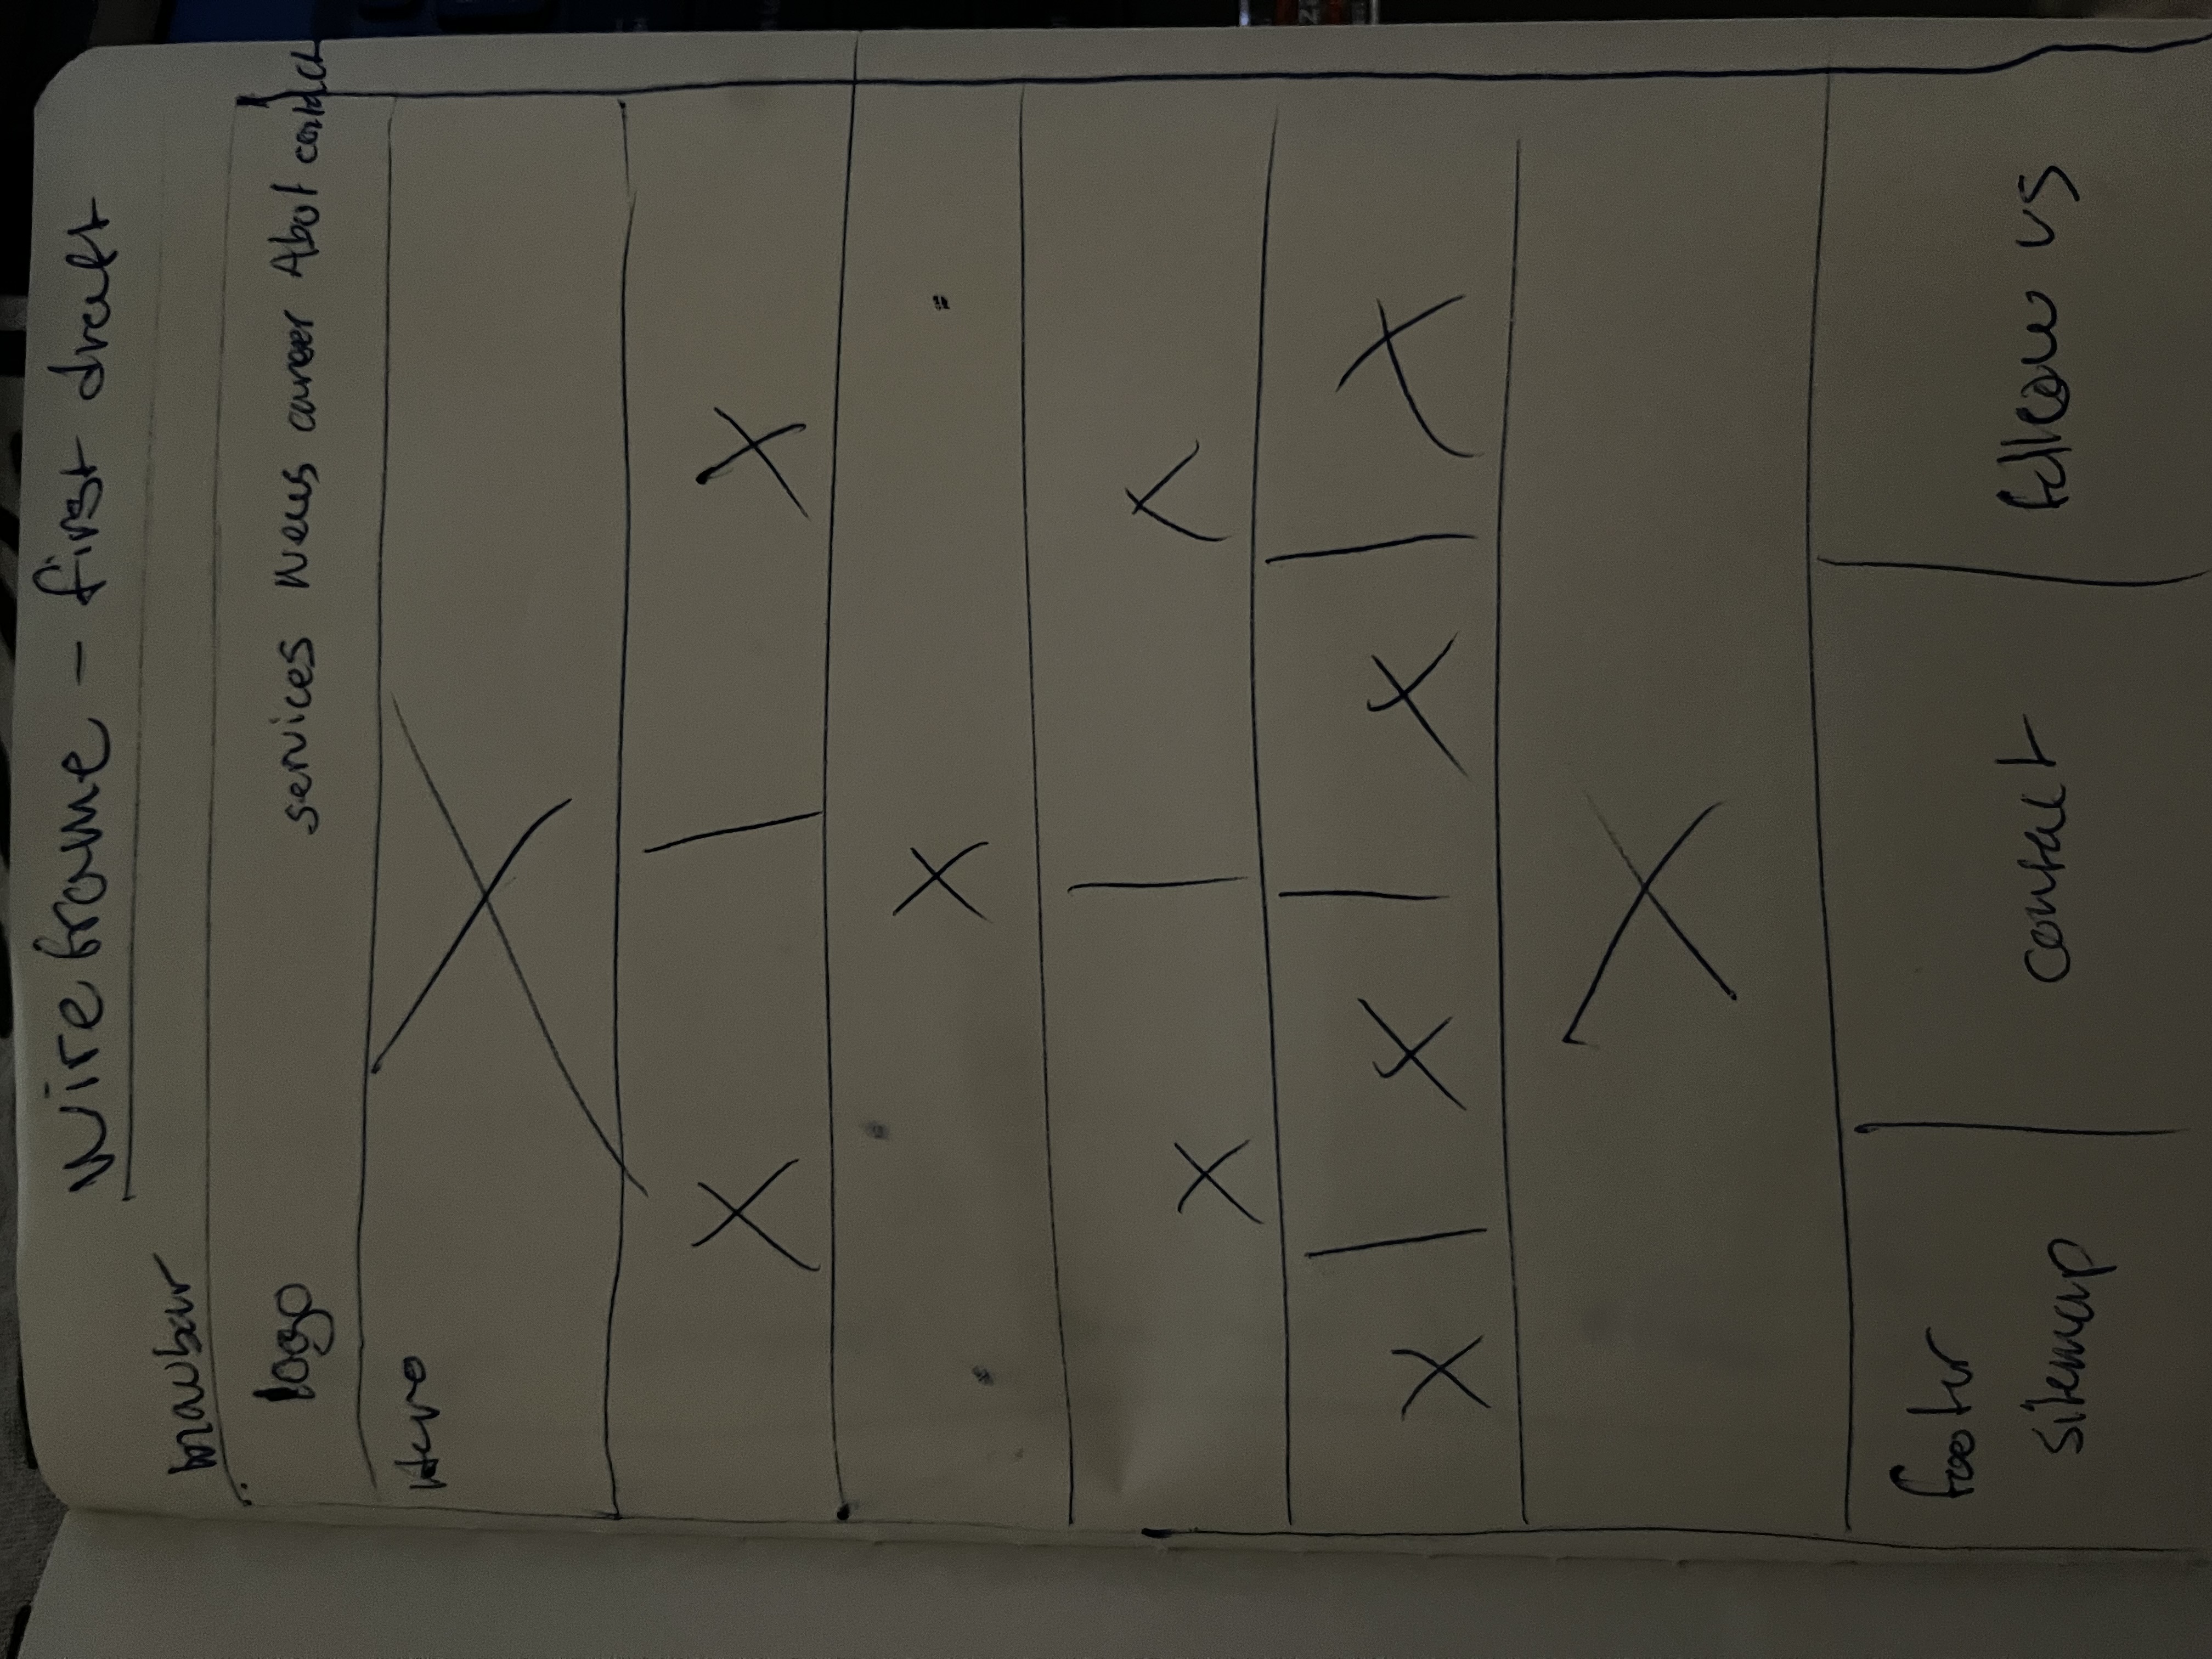 Wireframe - first draft
navbar
logo services News career About contact
Hero
X X
X
X X
X X X X
X
footer
sitemap contact follow us